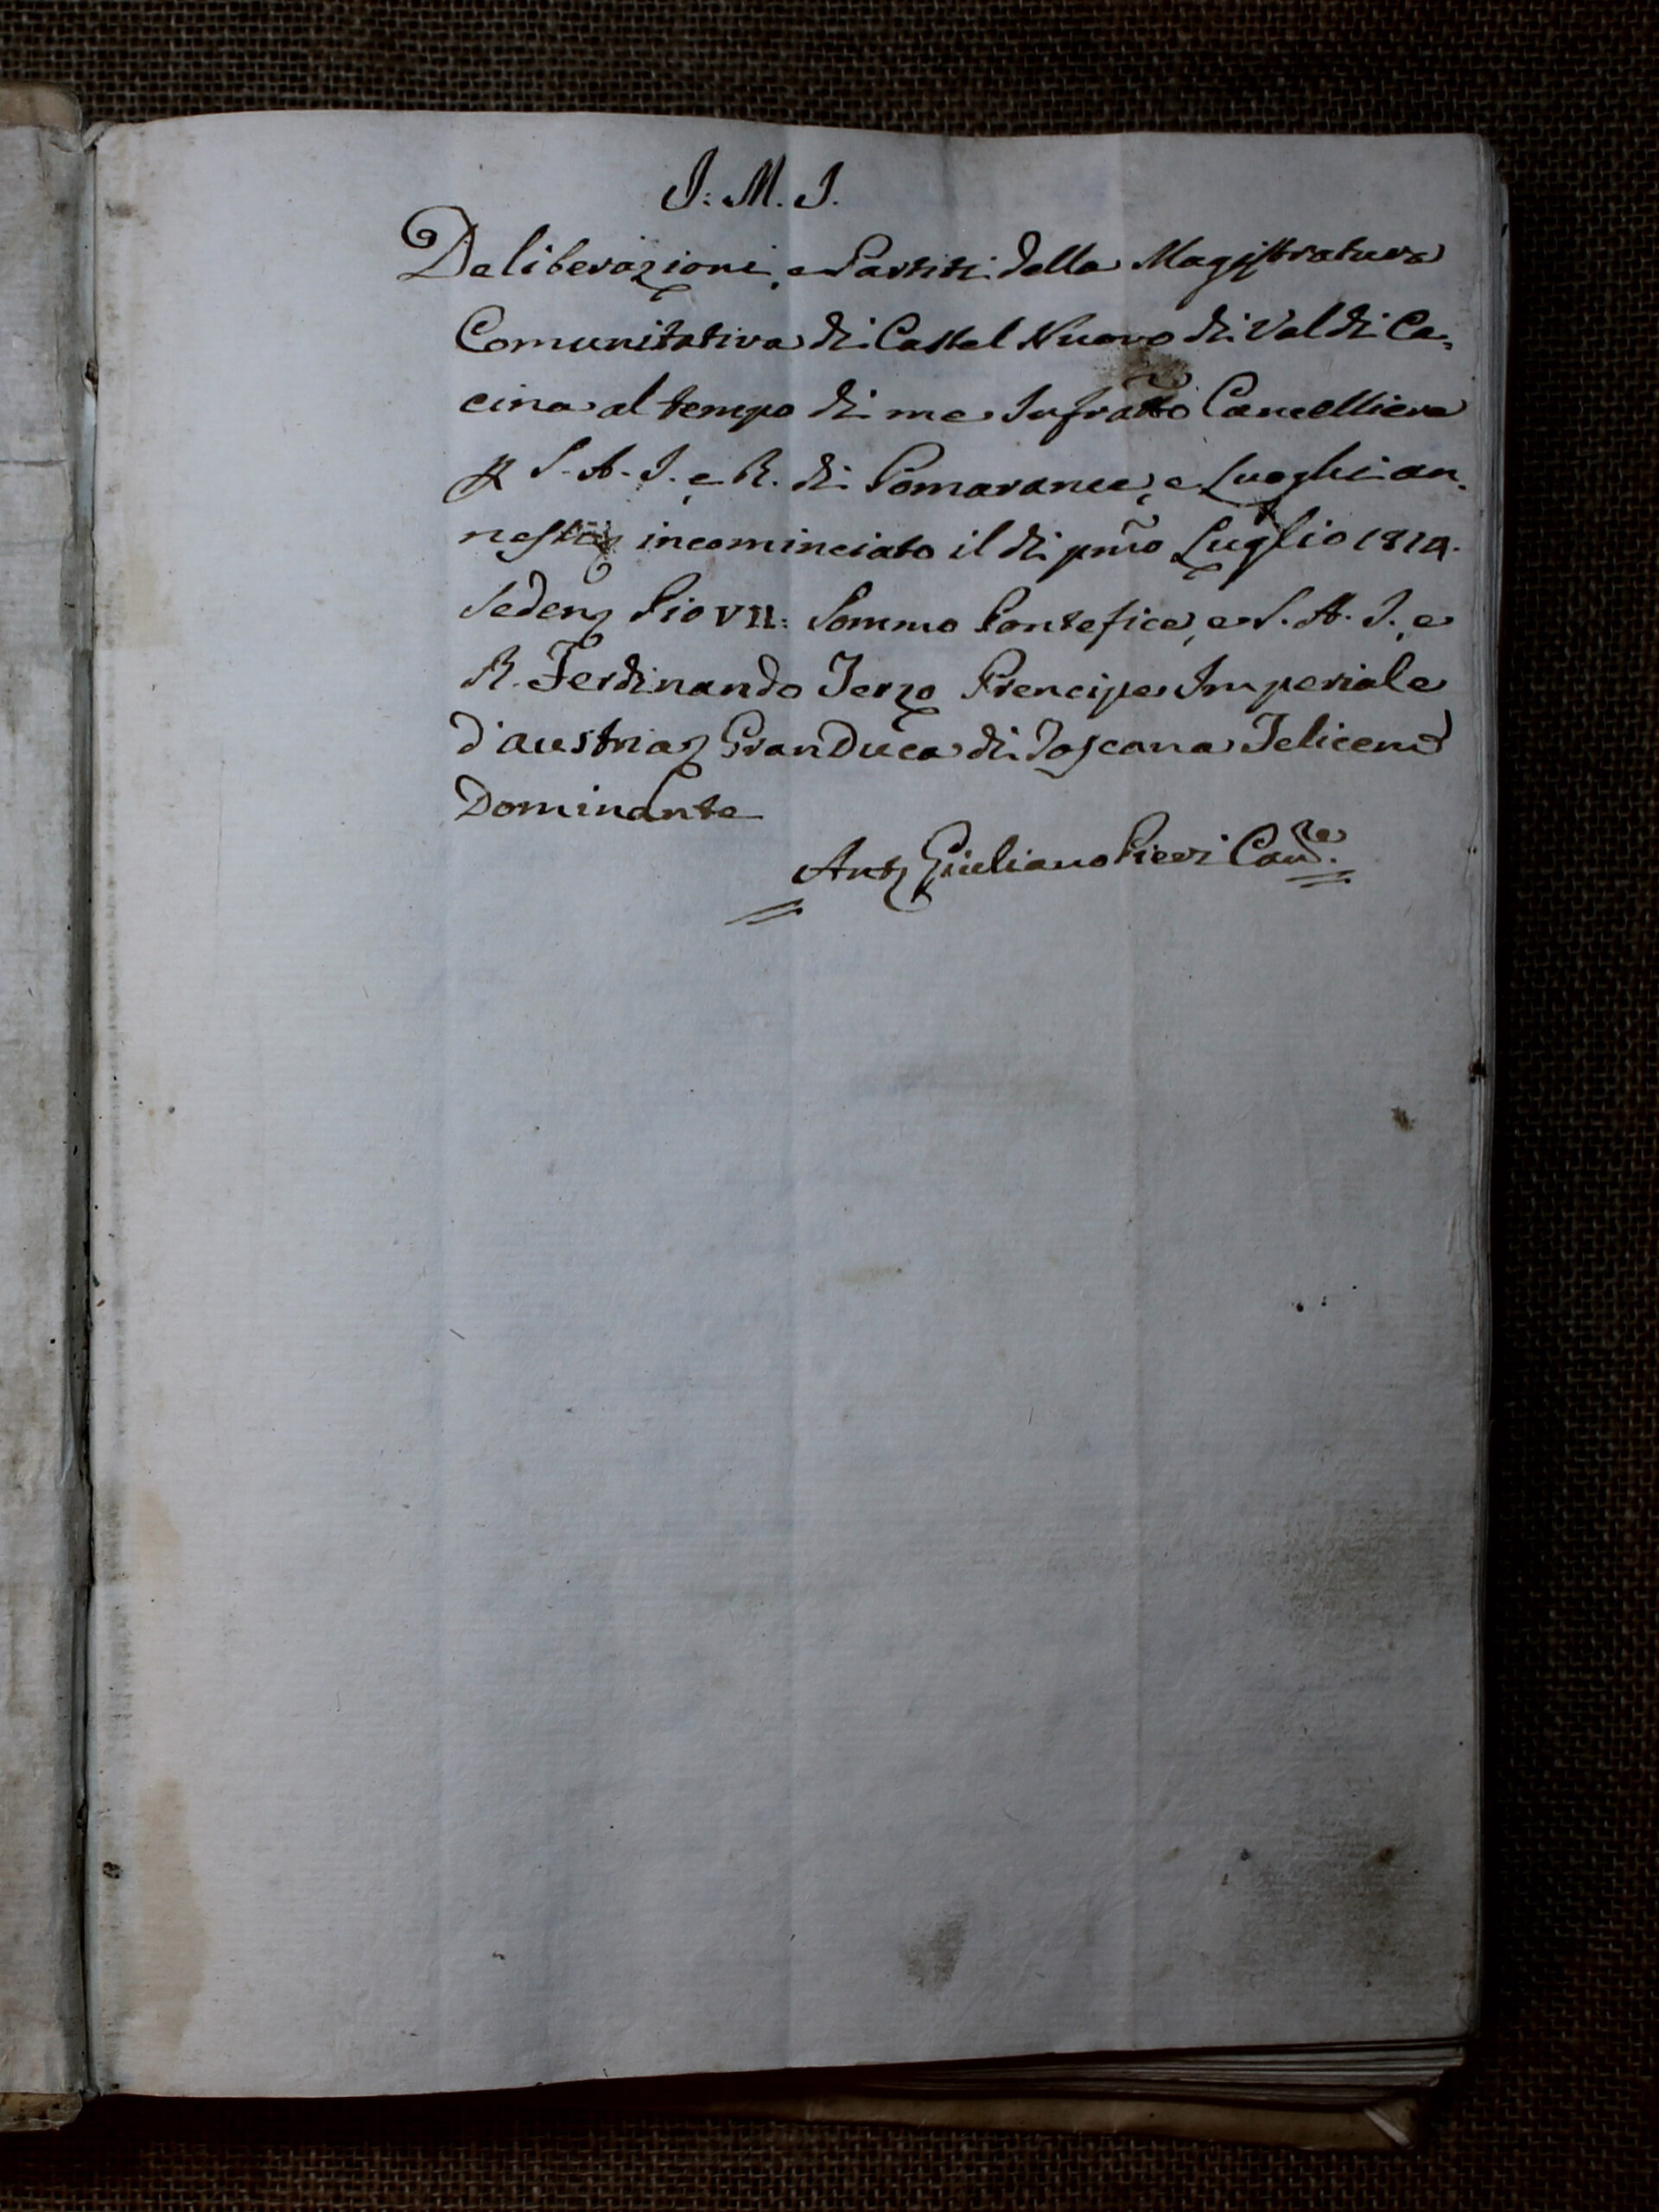 J: M. J.
Deliberazioni, e Partiti della Magistratura
Comunitativa di Castel Nuovo di Val di Ce,
cina al tempo di me Infratto Cancelliere
p S. A. I. e R. di Pomarance, e Luoghi an,
nessi incominciato il di pmo Luglio 1819.
Seden Pio VII: Sommo Pontefice, e S. A. I., e
R. Ferdinando Terzo Prencipe Imperiale
d'austria Gran Duca di Toscana Felicemte
Dominante
Anto Giuliano Pieri Cance.